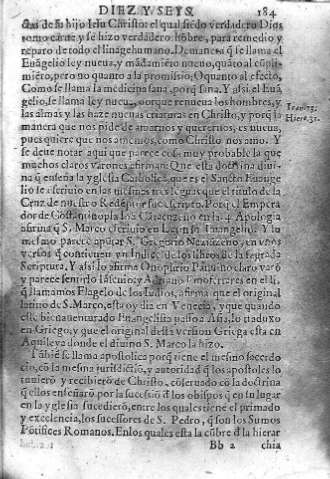 DIEZ Y SEYS. 184
de su hijo Iesu Christo: el qual siẽdo verdadero Dios
tomo carne, y se hizo verdadero hõbre, para remedio y
reparo de todo el linage humano. De manera q̃ se llama el
Euãgelio ley nueua, y mãdamiẽto nueuo, quãto al cũpli-
miẽto, pero no quanto a la promissiõ; O quanto al efecto,
Como se llama la medicina sana, porq̃ sana. Y assi el Euã
gelio, se llama ley nueua, porque renueua los hombres, y
las almas y las haze nueuas criaturas en Christo, y porq̃ la
manera que nos pide de amarnos y querernos, es nueua,
pues quiere que nos amemos, como Christo nos amo. Y
se deue notar aqui que parece cosa muy probable la que
muchos claros varones afirman: Que esta doctrina diui-
na q̃ enseña la yglesia Catholica, que es el Sancto Euange
lio se escriuio en las mesmas tres lenguas que el titulo de la
Cruz de nuestro Redẽptor fue escripto. Porq̃ el Empera-
dor de Cõstãtinopla en la 4 Apologia
afirma q̃ S. Marco escriuio en Latin su Euangelio. Y lo
mesmo parece apũtar S. Gregorio Naziãzeno, en vnos
versos q̃ contienen vn Indice de los libros de la sagrada
Scriptura. Y assi lo afirma Onophrio Panuino claro varõ
y parece sentirlo
q̃ llamamos Flagelo de los Iudios, afirma que el original
latino de S. Marco, esta oy dia en Venecia, y que quando
este bienauenturado Euangelista passo a Asia, lo traduxo
en Griego, y que el original desta version Griega esta en
Aquileya donde el diuino S. Marco la hizo.
Tãbiẽ se llama apostolica porq̃ tiene el mesmo sacerdo
cio, cõ la mesma iurisdictiõ, y autoridad q̃ los apostoles lo
tuuierõ y recibierõ de Christo, cõseruado cõ la doctrina
q̃ ellos enseñarõ por la successiõ d̃ los obispos q̃ en su lugar
en la yglesia sucedierõ, entre los quales tiene el primado
y excelencia, los successores de S. Pedro, q̃ son los Sumos
Põtifices Romanos. En los quales esta la cũbre d̃ la hierar
Bb 2 chia